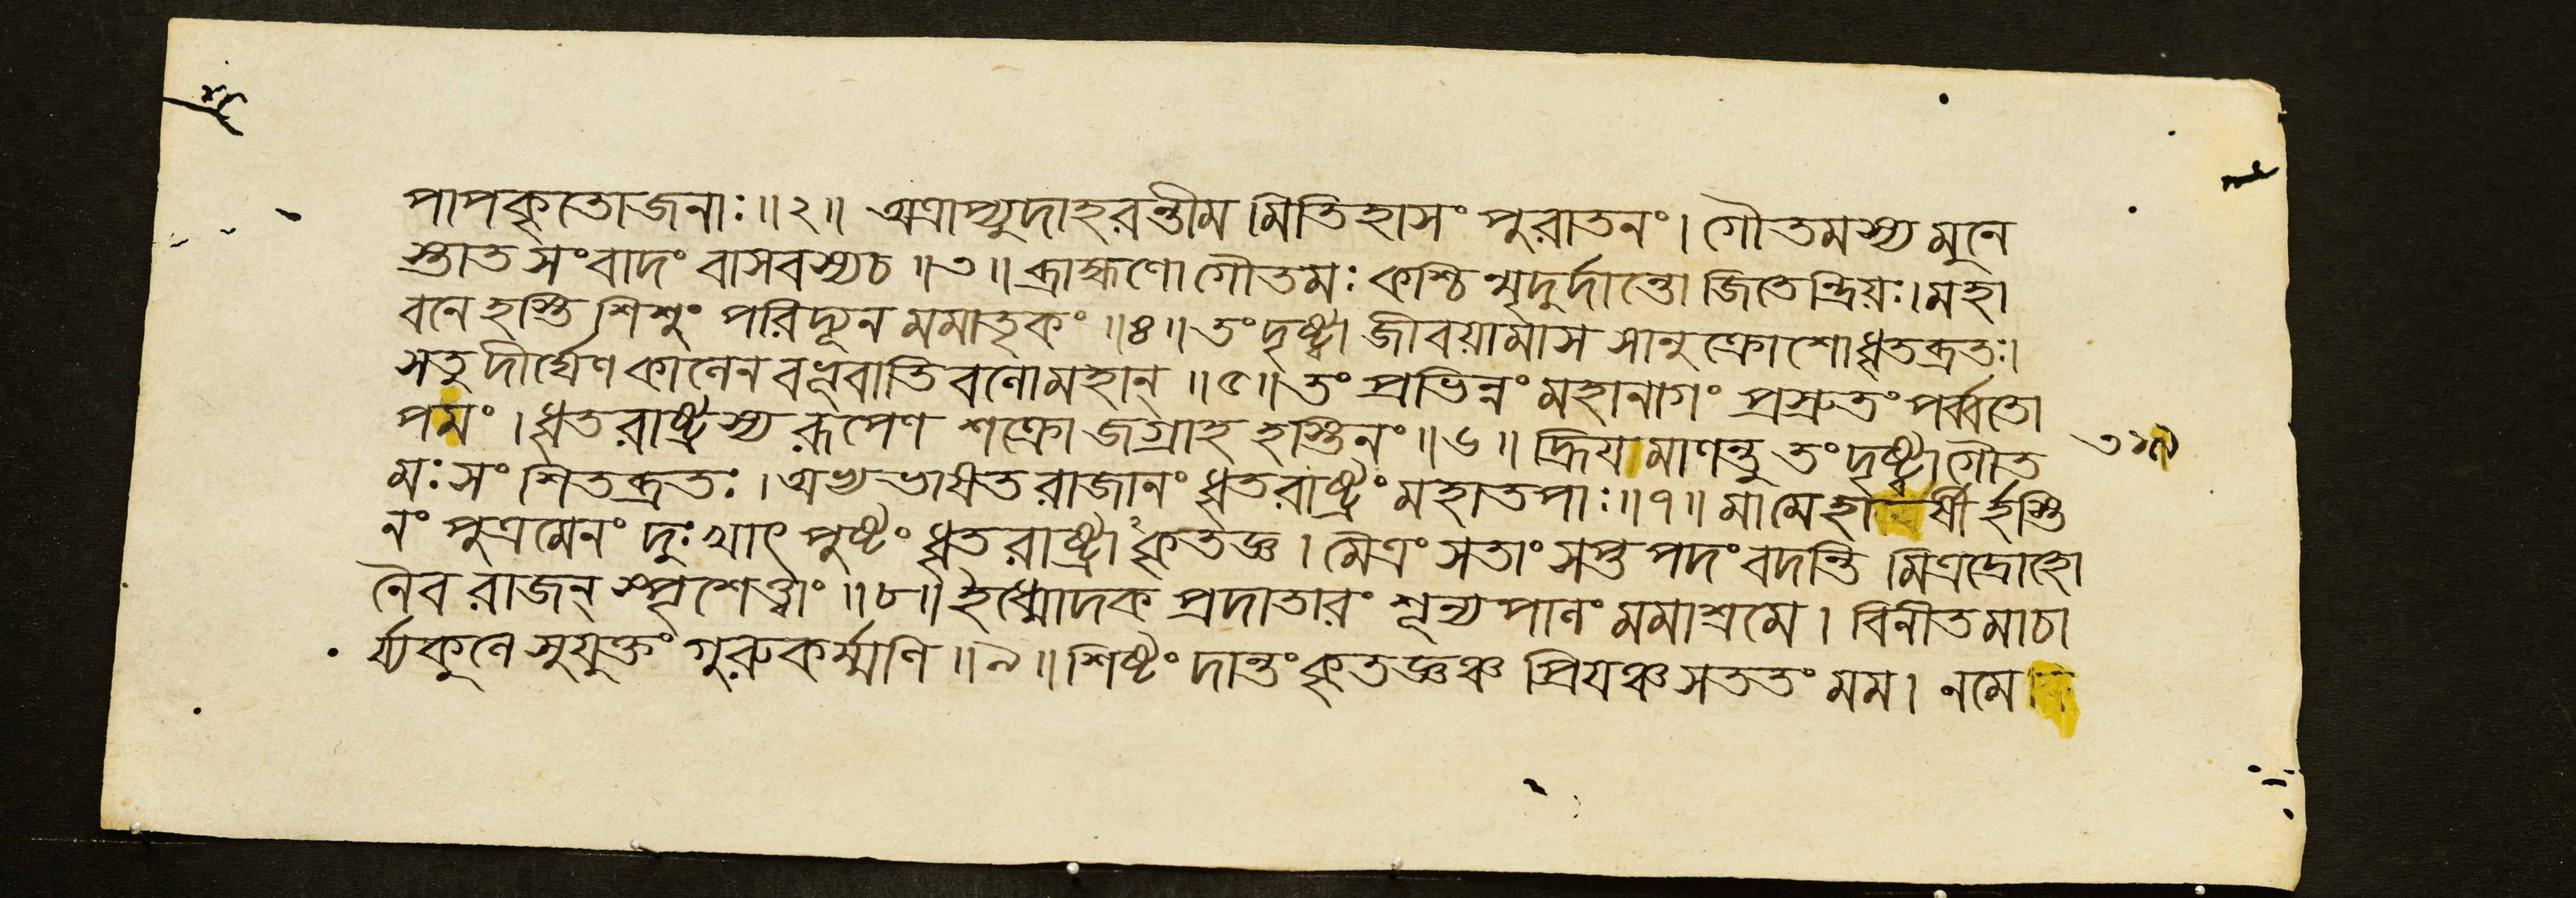 পাপকৃতোজনাঃ॥২॥ অত্রাপ্যুদাহরন্তীমমিতিহাসং পুরাতনং। গৌতমস্য মুনে
স্তাত সংবাদং বাসবস্যচ॥৩॥ ব্রাহ্মণোগৌতমঃ কশ্চিন্মৃদুর্দান্তো জিতেন্দ্রিয়ঃ। মহা
বনে হস্তিশিশুং পরিদ্যূনমমাতৃকং॥৪॥ তংদৃষ্ট্বা জীবয়ামাস সানুক্রোশোধৃতব্রতঃ।
সতু দীর্ঘেণ কালেন বভূবাতিবলোমহান্॥৫॥ তং প্রভিন্নং মহানাগং প্রস্রুতং পর্ব্বতো
পমং। ধৃতরাষ্ট্রস্য রূপেণ শক্রো জগ্রাহ হস্তিনং॥৬॥ হ্রিয়মাণন্তু তংদৃষ্ট্বাগৌত
মঃ সংশিতব্রতঃ। অভ্যভাষত রাজানং ধৃতরাষ্ট্রং মহাতপাঃ॥৭॥ মামেহার্ষীর্হস্তি
নং পুত্রমেনং দুঃখাৎ পুষ্টং ধৃতরাষ্ট্রাকৃতজ্ঞ। মৈত্রং সতাং সপ্তপদং বদন্তি মিত্রদ্রোহো
নৈব রাজন্ স্পৃশেত্ত্বাং॥৮॥ ইধ্মোদকপ্রদাতারং শূন্যপালং মমাশ্রমে। বিনীতমাচা
র্য্যকুলে সুযুক্তং গুরুকর্ম্মণি॥৯॥ শিষ্টং দান্তং কৃতজ্ঞঞ্চ প্রিয়ঞ্চ সততং মম। নমে